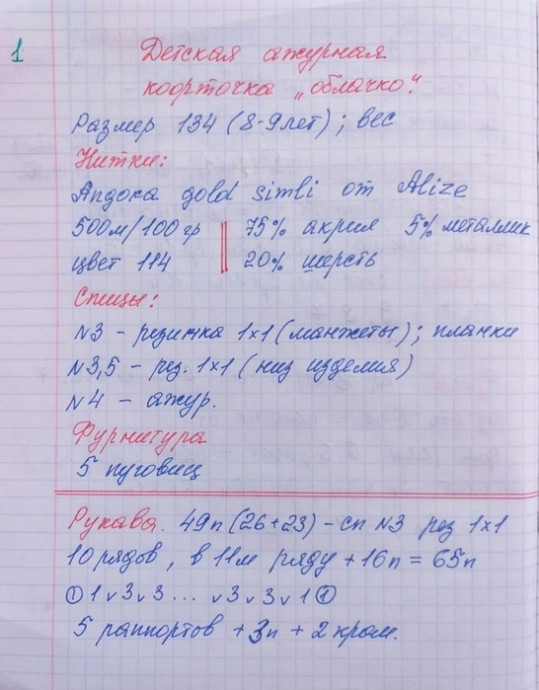 1
Детская ажурная
кофточка „облачко".
Размер 134 (8-9лет); вес
Нитки:
Angora gold simli от Alize
500м/100гр 75% акрил 5% металлик
цвет 114 20% шерсть
Спицы:
N3 – резинка 1х1 (манжеты); планки
N3,5 – рез. 1х1 (низ изделия)
N4 – ажур.
Фурнитура
5 пуговиц
Рукава. 49п (26+23) – сп N3 рез 1х1
10 рядов, в 11м ряду +16п = 65п
① 1 v 3 v 3 ... v 3 v 3 v 1 ①
5 раппортов + 3п + 2 кром.